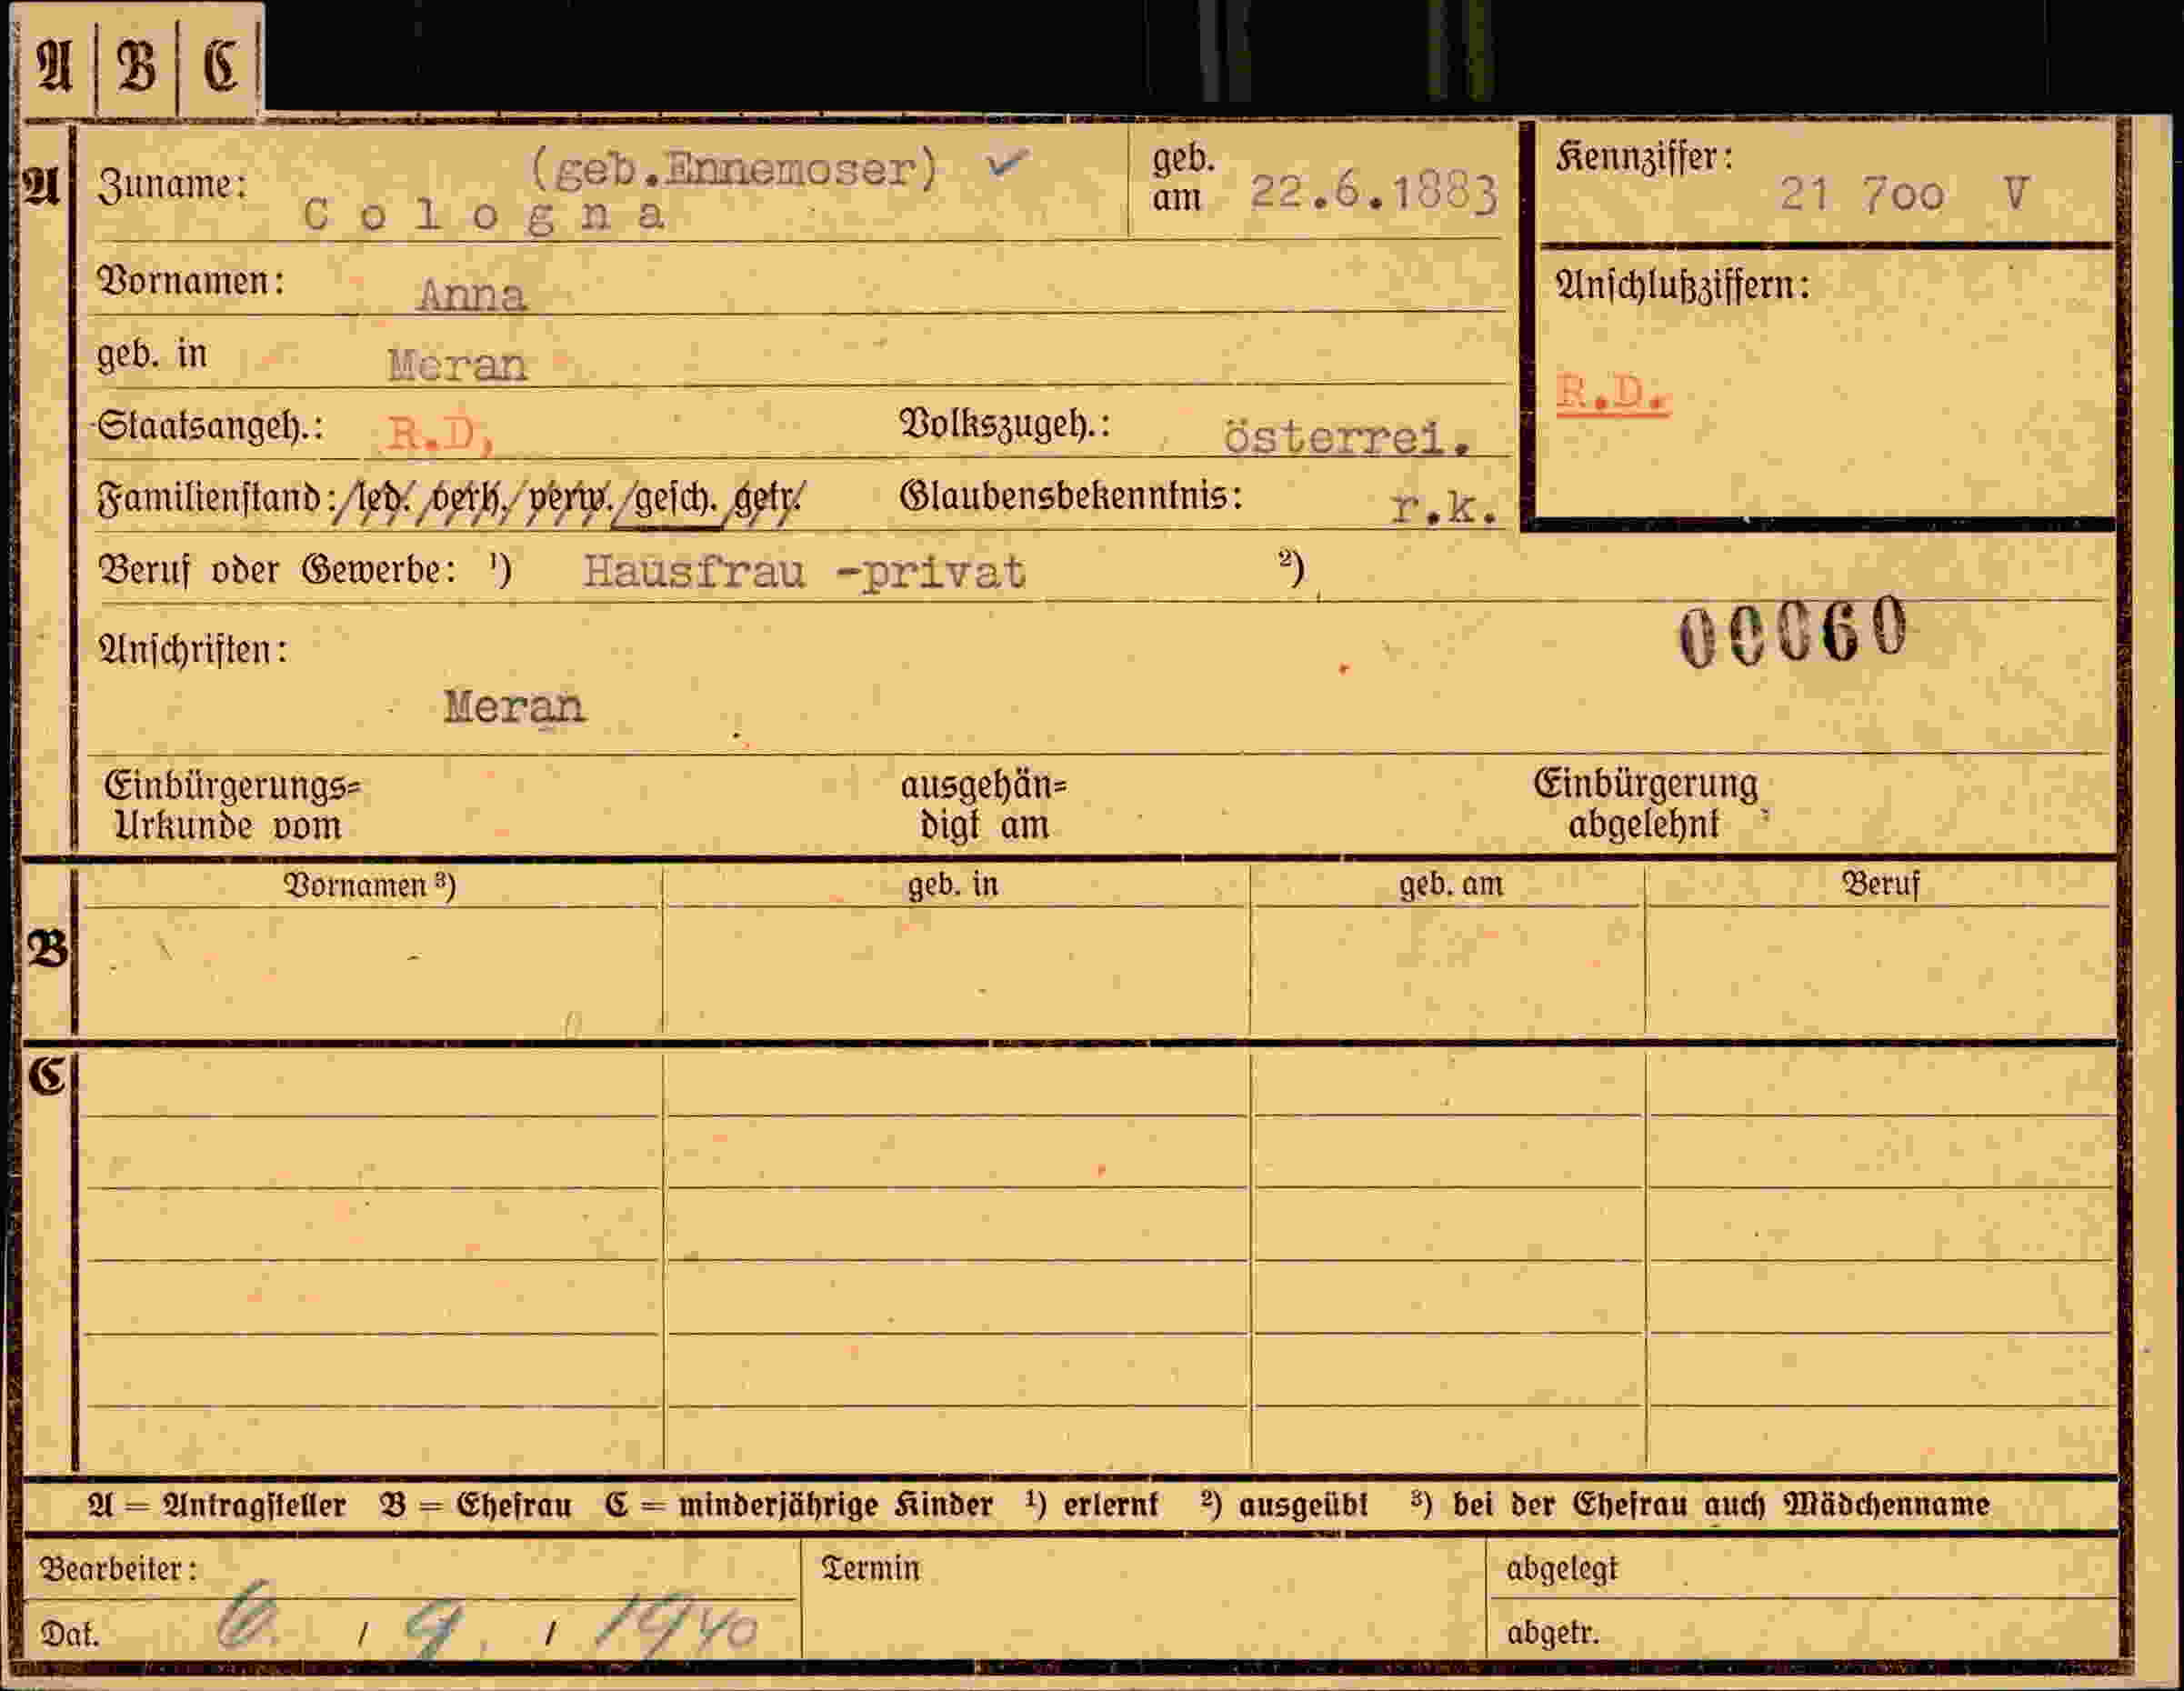 A | B | C
A
Zuname: C o l o g n a (geb.Ennemoser) ✓
geb. am 22.6.1883
Kennziffer: 21 7oo V
Vornamen: Anna
Anschlußziffern:
R.D.
geb. in Meran
Staatsangeh.: R.D, Volkszugeh.: österrei.
Familienstand: /led./verh./verw./gesch. getr. Glaubensbekenntnis: r.k.
Beruf oder Gewerbe: ¹) Hausfrau -privat ²)
00060
Anschriften:
Meran
Einbürgerungs=
Urkunde vom
ausgehän=
digt am
Einbürgerung
abgelehnt
B
Vornamen ³) geb. in geb. am Beruf
C
A = Antragsteller B = Ehefrau C = minderjährige Kinder ¹) erlernt ²) ausgeübt ³) bei der Ehefrau auch Mädchenname
Bearbeiter: Termin abgelegt
Dat. 6. / 9. / 1940 abgetr.